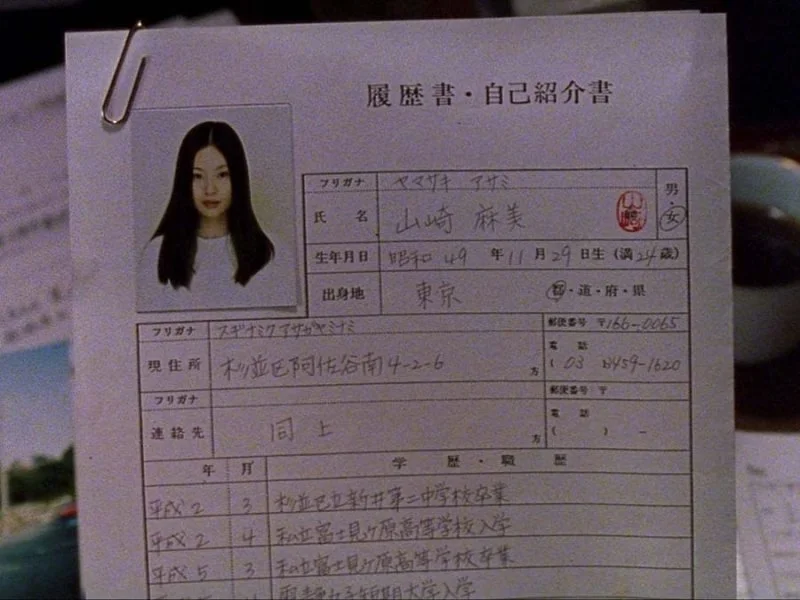 履歴書・自己紹介書
フリガナ ヤマサキ アサミ 男
氏名 山崎 麻美 ・女
生年月日 昭和 49 年 11 月 29 日生 (満 24 歳)
出身地 東京 都・道・府・県
フリガナ スギナミクアサガヤミナミ 郵便番号 〒166-0065
現住所 杉並区阿佐谷南4-2-6 方 電話 ( 03 ) 3459-1620
フリガナ 郵便番号 〒
連絡先 同上 方 電話 ( ) -
年 月 学歴・職歴
平成2 3 杉並区立新井第二中学校卒業
平成2 4 私立富士見ヶ原高等学校入学
平成5 3 私立富士見ヶ原高等学校卒業
短期大学入学